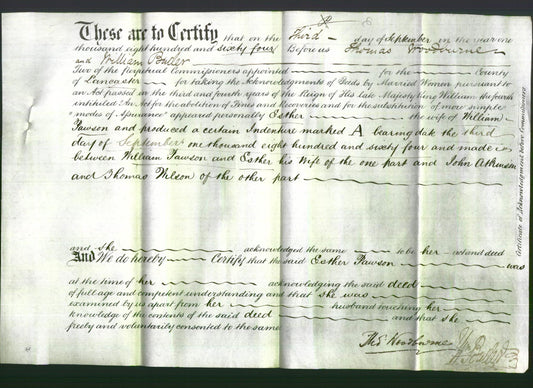 These are to Certify that on the Third day of September in the year one
thousand eight hundred and sixty four Before us Thomas Woodburne
and William Butler
Two of the perpetual Commissioners appointed for the County
of Lancaster for taking the Acknowledgments of Deeds by Married Women pursuant to
an Act passed in the third and fourth years of the Reign of His late Majesty King William the fourth
intituled An Act for the abolition of Fines and Recoveries and for the substitution of more simple
modes of Assurance appeared personally Esther the wife of William
Pawson and produced a certain Indenture marked A bearing date the third
day of September one thousand eight hundred and sixty four and made
between William Pawson and Esther his Wife of the one part and John Atkinson
and Thomas Wilson of the other part
and she acknowledged the same to be her act and deed
And We do hereby Certify that the said Esther Pawson was
at the time of her acknowledging the said deed
of full age and competent understanding and that she was
examined by us apart from her husband touching her
knowledge of the contents of the said deed and that she
freely and voluntarily consented to the same
Thos Woodburne
Certificate of Acknowledgment before Commissioners